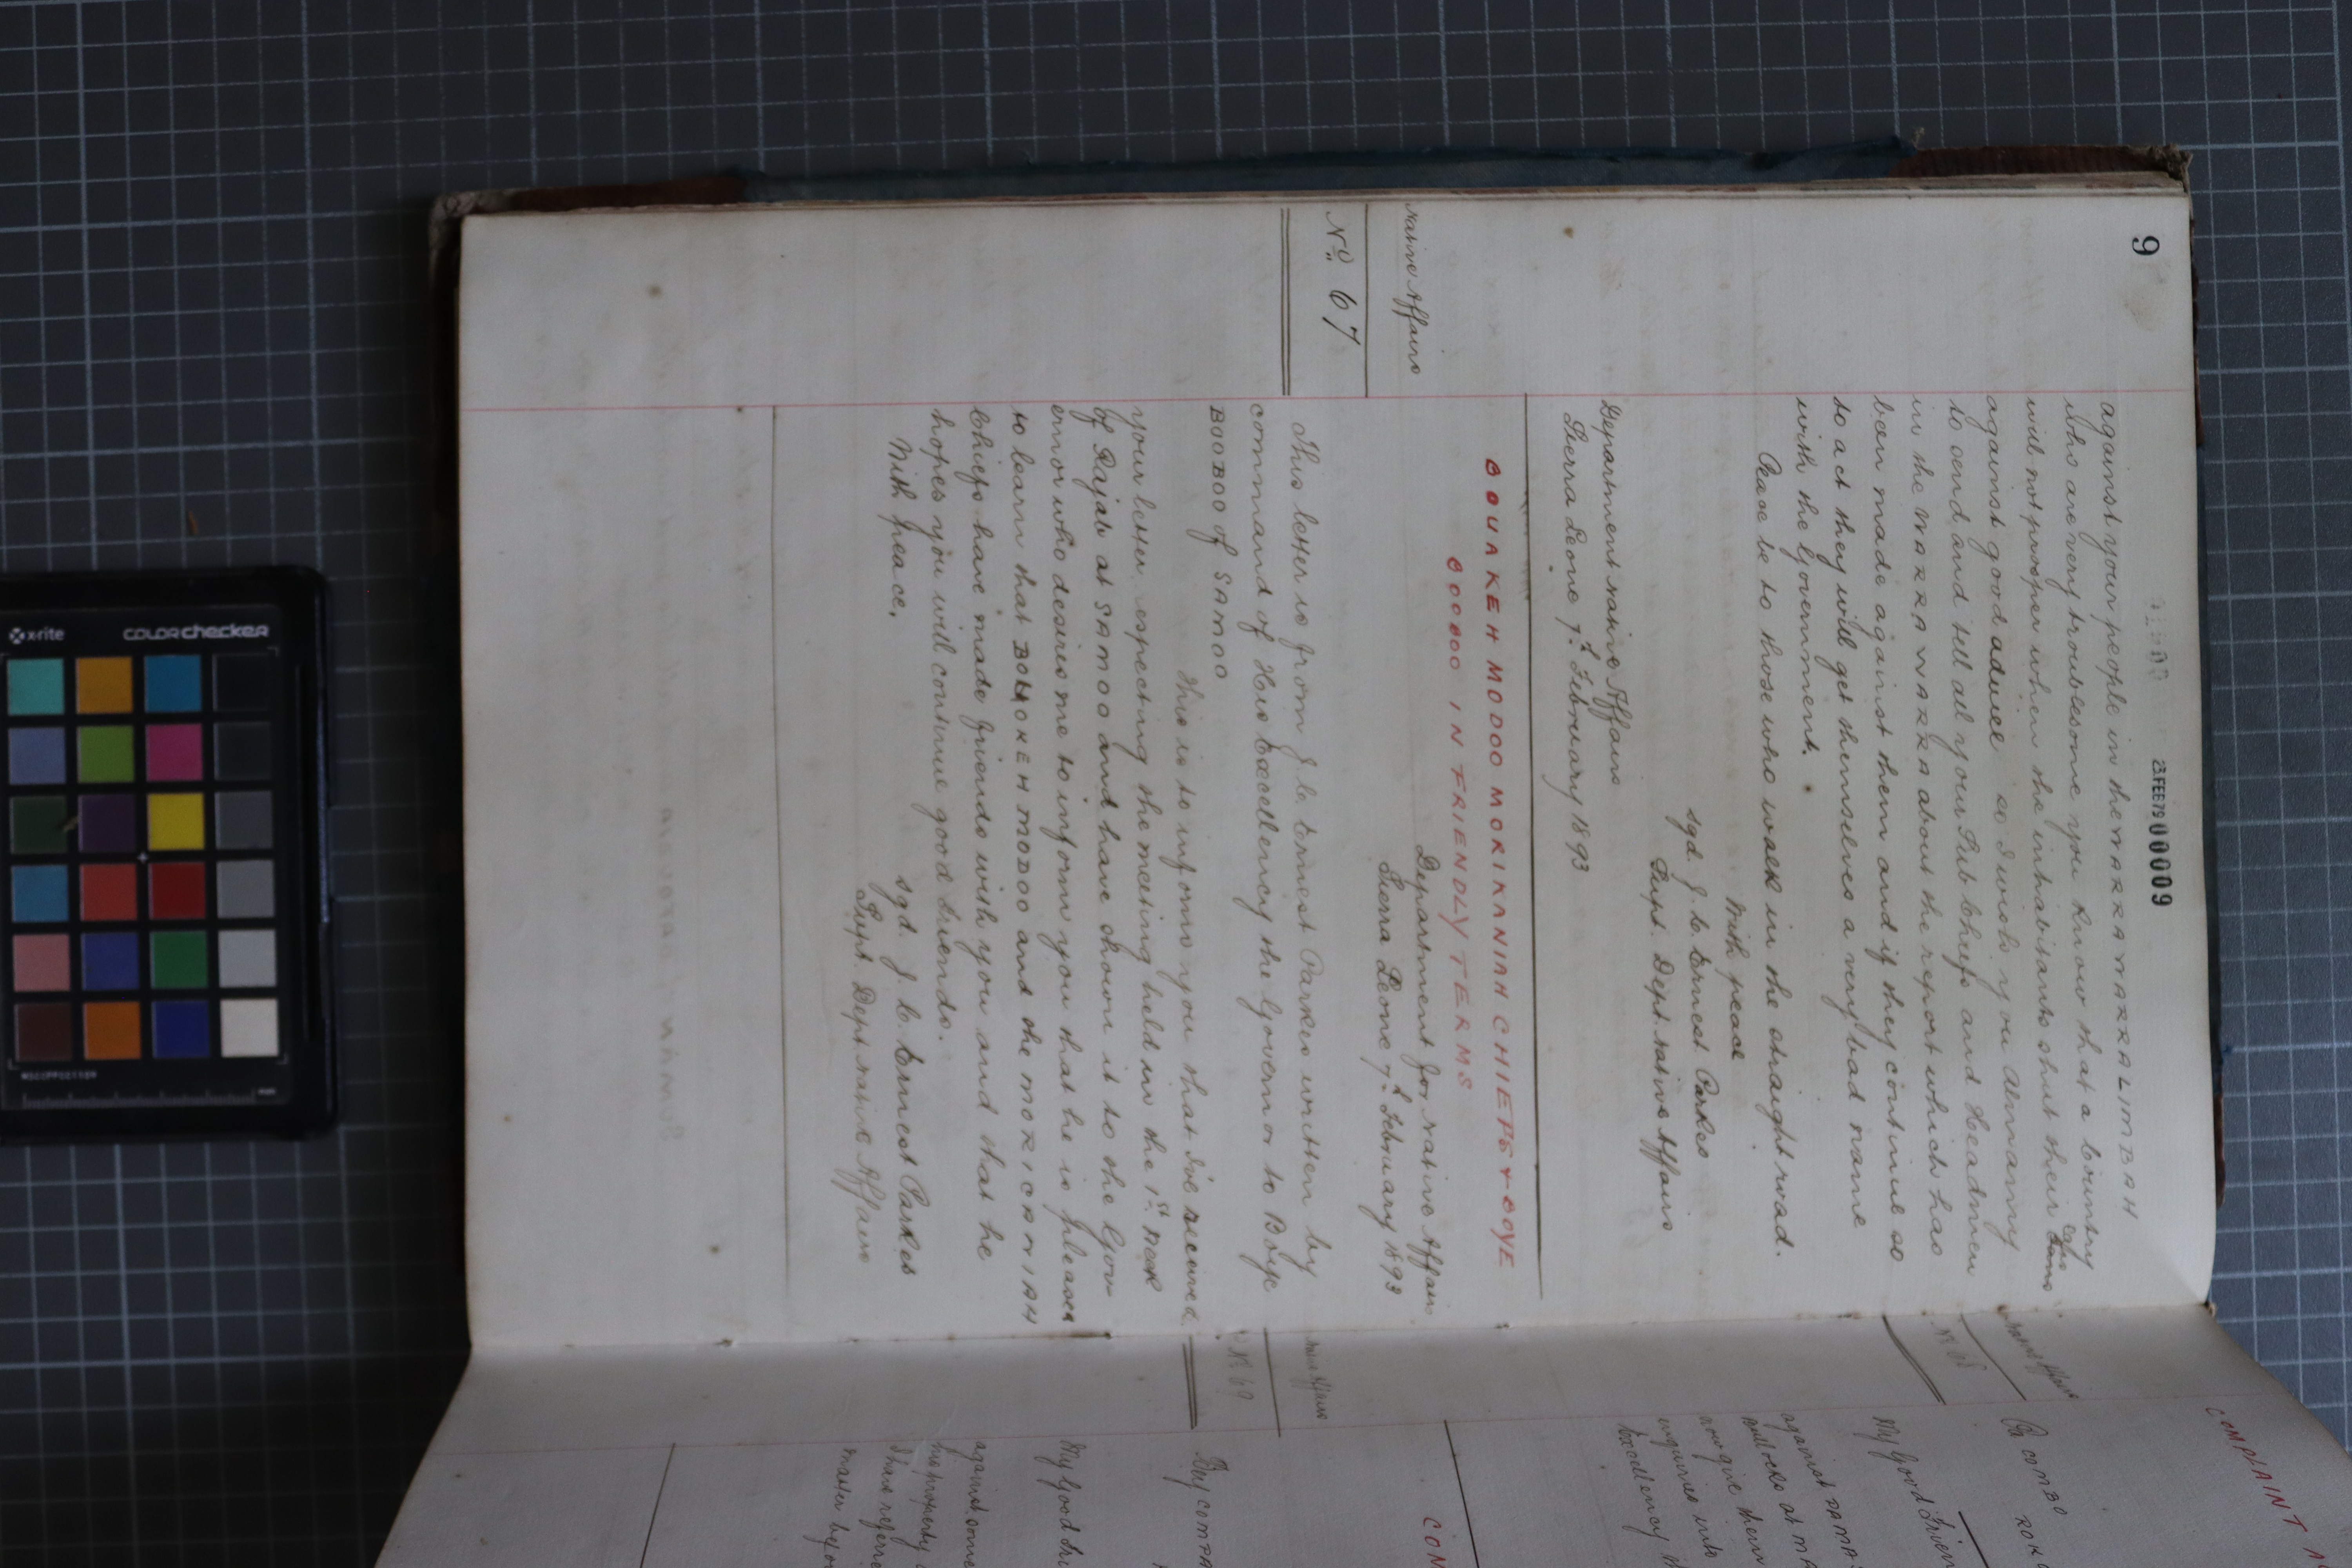 9
23 FEB 79 00009
against your people in the WARRA WARRA LIMBAH
who are very troublesome you know that a Country
will not prosper when the inhabitants shut their Ears
against good advice so I wish you Almamy
to send and tell all your Sub Chiefs and Headmen
in the WARRA WARRA about the report which has
been made against them and if they continue so
to act they will get themselves a very bad name
with the Government.
Peace be to those who walk in the straight road.
With peace
sgd J. C. Ernest Parkes
Supt. Dept. Native Affairs
Department Native Affairs
Sierra Leone 7th February 1893
BOUAKEH MODOO MORIKANIAH CHIEFS & BOYE
BOOBOO IN FRIENDLY TERMS
Native Affairs
No 67
Department for Native Affairs
Sierra Leone 7th February 1893
This letter is from J. C. Ernest Parkes written by
command of His Excellency the Governor to Boye
BOOBOO of SAMOO
This is to inform you that I've received
your letter respecting the meeting held in the 1st week
of Rajab at SAMOO and have shown it to the Gov-
ernor who desires me to inform you that he is pleased
to learn that BOHOKEH MODOO and the MORICANIAH
Chiefs have made friends with you and that he
hopes you will continue good friends.
With peace,
sgd. J. C. Ernest Parkes
Supt. Dept. Native Affairs
COMPLAINT
Native Affairs
Pa COMBO
My Good Frien
against
bullocks at MA
now give them
inquiries into
Excellency
CON
Native Affairs
No 69
My Good Fri
against some
his property
I have referre
matter be
x-rite
colorchecker